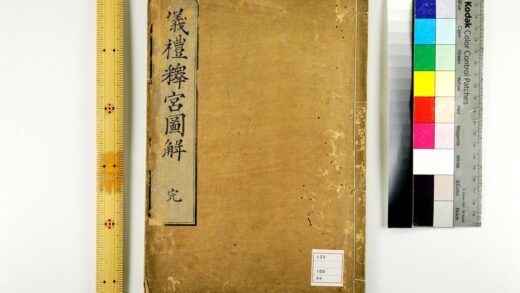 儀禮釋宮圖解
完
Kodak
Color Control Patches
Blue
Cyan
Green
Yellow
Red
Magenta
White
3/Color
Black
123
100